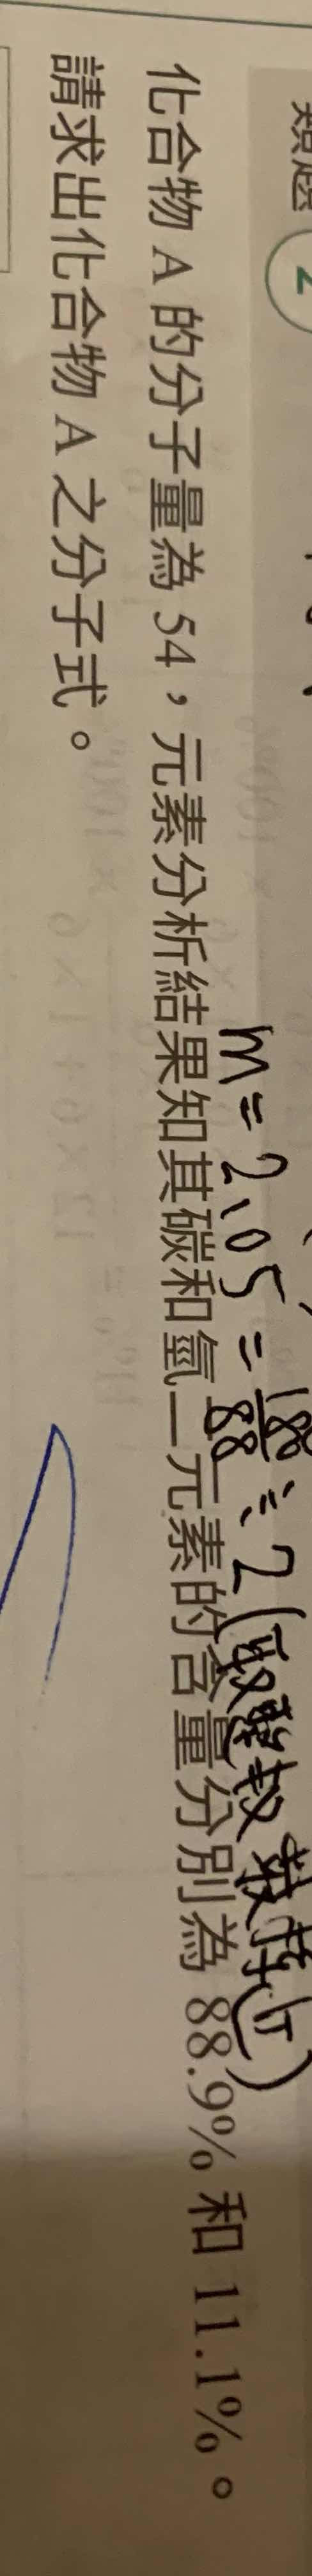 類題 2
m = 2.05 = 180/88 ≒ 2 (取整數最接近)
化合物 A 的分子量為 54,元素分析結果知其碳和氫二元素的含量分別為 88.9% 和 11.1%。
請求出化合物 A 之分子式。